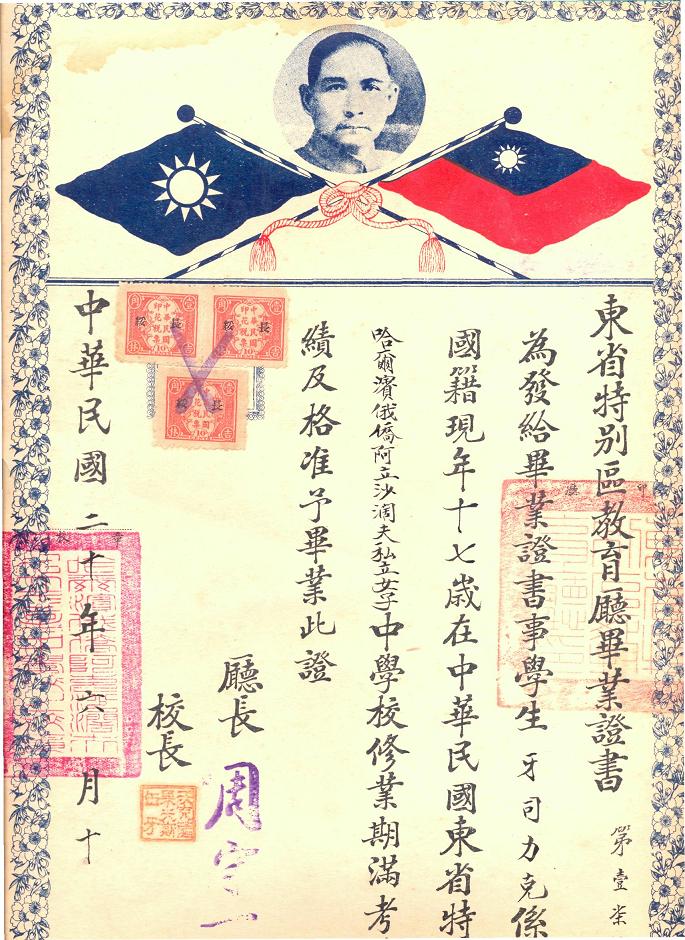 東省特別區教育廳畢業證書
第壹柒
為發給畢業證書事學生牙司力克係
國籍現年十七歲在中華民國東省特
哈爾濱俄僑阿立沙濶夫私立女子中學校修業期滿考
績及格准予畢業此證
廳長 周守一
校長
中華民國二十年六月十
中華民國印花稅票
長綏
吉林
壹角
10
中華民國印花稅票
長綏
10
10